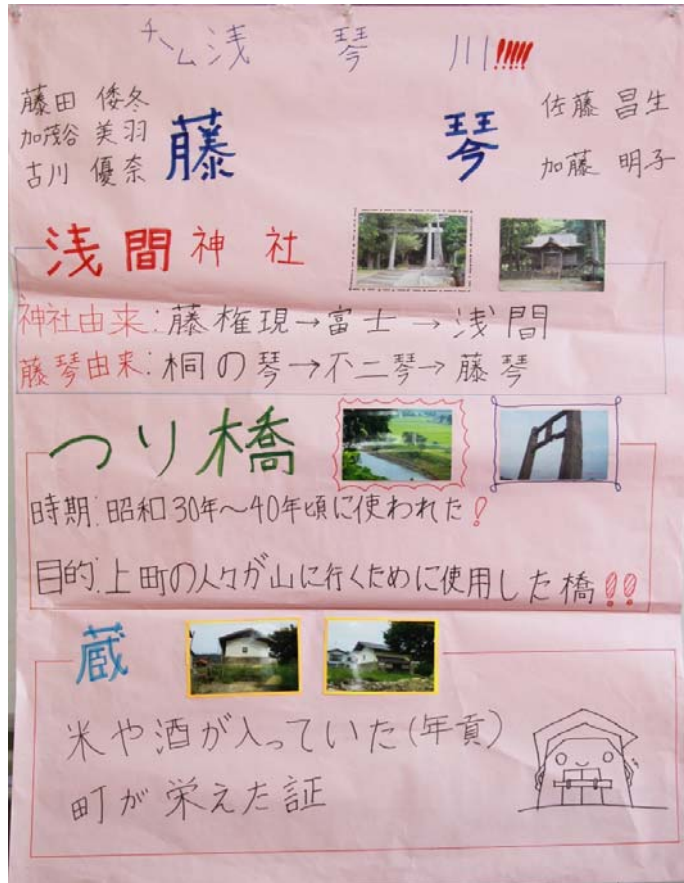 チーム浅琴川!!!!!
藤田 倭冬
加茂谷 美羽
古川 優奈
藤琴
佐藤 昌生
加藤 明子
浅間神社
神社由来:藤権現→富士→浅間
藤琴由来:桐の琴→不二琴→藤琴
つり橋
時期:昭和30年〜40年頃に使われた!
目的:上町の人々が山に行くために使用した橋!!
蔵
米や酒が入っていた(年貢)
町が栄えた証